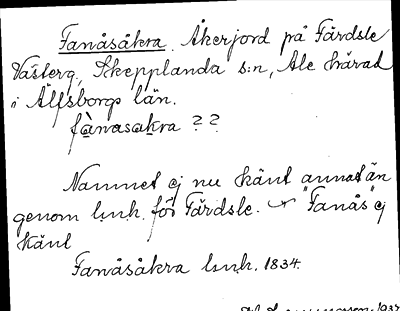 Fanåsåkra. Åkerjord på Färdsle
Västerg, Skepplanda s:n, Ale härad
i Älfsborgs län.
fànasakra ??
Namnet ej nu känt annat än
genom l.n.h. för Färdsle. "Fanås" ej
känt
Fanåsåkra l.n.h. 1834.
1937